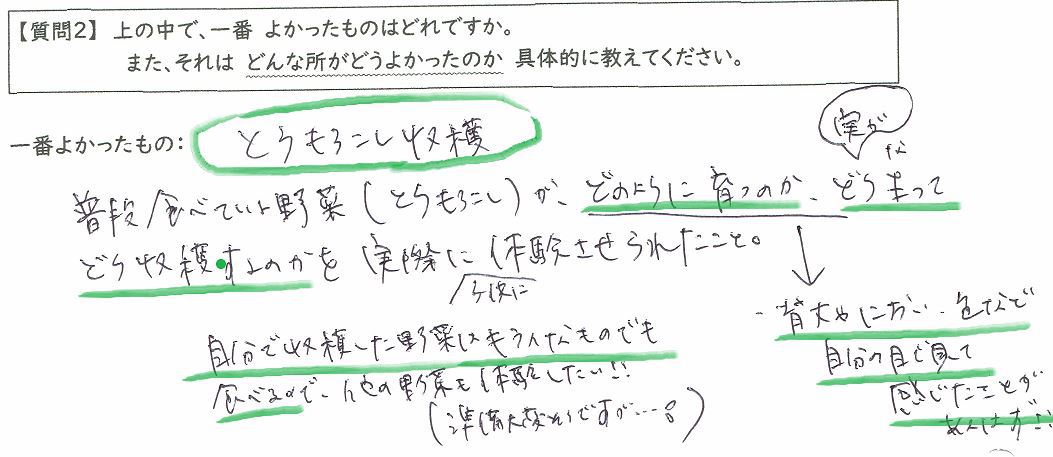 【質問2】 上の中で、一番 よかったものはどれですか。
また、それは どんな所がどうよかったのか 具体的に教えてください。
一番よかったもの: とうもろこし収穫
実が
な
普段食べている野菜(とうもろこし)が、どのように育つのか、どう実って
どう収穫するのかを実際に体験させられたこと。
子供に
自分で収穫した野菜はもちろんどんなものでも
食べるので、他の野菜も体験したい!!
(準備大変そうですが…。)
背丈やにおい、色など
自分の目で見て
感じたことが